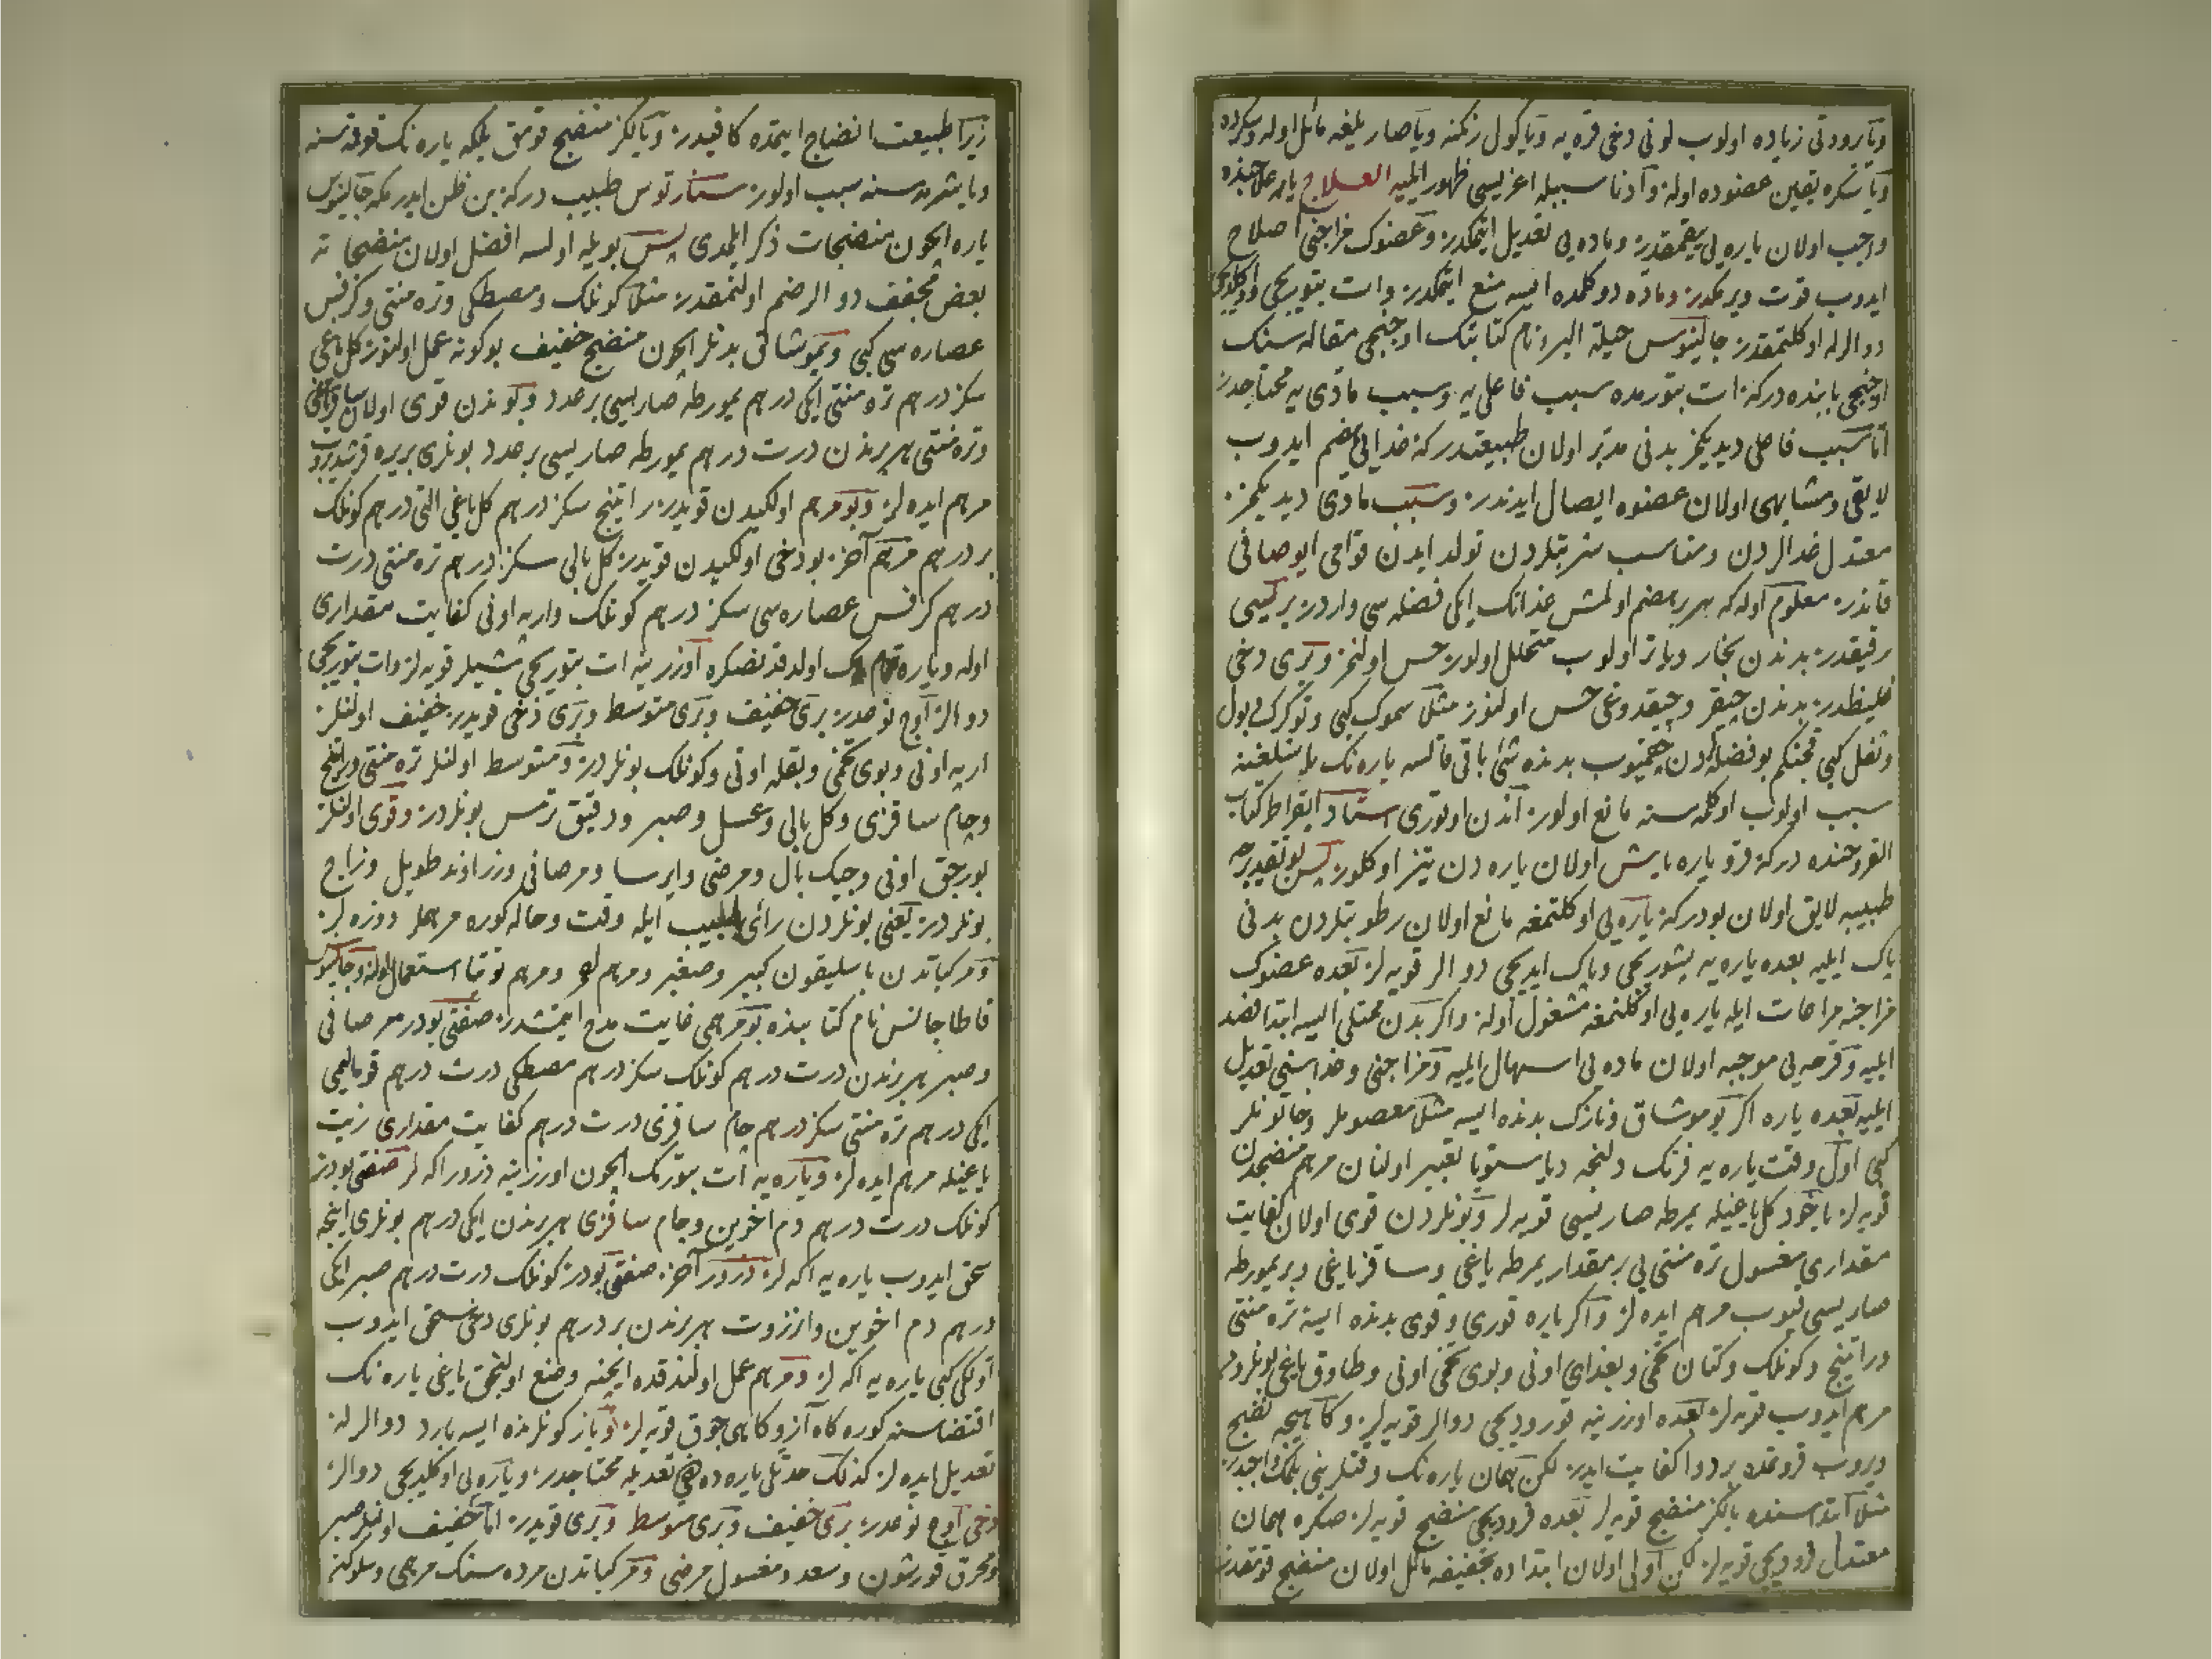 ویا برودتی زیاده اولوب لونی دخی قره یه ویا کول رنکنه ویا صاریلغه مائل اوله
ویا سکره یقین عضوده اوله وادنا سببله اغریسی ظهور ایلیه العلاج یاره علاجنده
واجب اولان یاره یی یقمقدر وماده یی تعدیل ایتمکدر وعضوک مزاجنی اصلاح
ایدوب قوت ویرمکدر وماده دوکلمده ایسه منع ایتمکدر وات بتوریجی
دوالرله اوکلتمقدر جالینوس حیلة البرء نام کتابنک اوچنجی مقاله سنک
اوچنجی بابنده درکه ات بتورمده سبب فاعلی یه وسبب مادی یه محتاجدر
اما سبب فاعلی دیدیکمز بدنی مدبر اولان طبیعتدر که غدایی هضم ایدوب
لایقی ومشابهی اولان عضوه ایصال ایدندر وسبب مادی دیدیکمز
معتدل غدالردن ومناسب شربتلردن تولد ایدن قوامی ایو صافی
قاندر معلوم اوله که هر بر هضم اولمش غدانک ایکی فضله سی واردر بریسی
رقیقدر بدندن بخار ویا تر اولوب متحلل اولور حس اولنمز وبری دخی
غلیظدر بدندن چیقر وچیقدوغی حس اولنور مثلا سموک کبی وتوکرک بول
وثفل کبی قچنکم بو فضله لردن چقمیوب بدنده شئ باقی قالسه یاره نک یاشلغنه
سبب اولوب اوکلمه سنه مانع اولور آندن اوتوری استاد ابقراط کتاب
القروحنده درکه قورو یاره یاش اولان یاره دن تیز اوکلور پس بو تقدیرجه
طبیبه لایق اولان بودرکه یاره یی اوکلتمغه مانع اولان رطوبتلردن بدنی
پاک ایلیه بعده یاره یه پشوریجی وپاک ایدیجی دوالر قویه لر بعده عضوک
مزاجنه مراعات ایله یاره یی اوکلتمغه مشغول اوله واکر بدن ممتلی ایسه ابتدا فصد
ایلیه وقرحه یی موجبه اولان ماده یی اسهال ایلیه ومزاجنی وغداسنی تعدیل
ایلیه بعده یاره اکر یوموشاق ونازک بدنده ایسه مثلا معصوملر وخاتونلر
کبی اول وقت یاره یه فرنک دلنجه دیاستویا تعبیر اولنان مرهم منضجدن
قویه لر یاخود کل یاغیله یمرطه صاریسی قویه لر وبونلردن قوی اولان کفایت
مقداری مغسول تره منتی یی بر مقدار یمرطه یاغی وساقز یاغی وبر یمورطه
صاریسی قیوب مرهم ایده لر واکر یاره قوری وقوی بدنده ایسه تره منتی
وراتینج وکونلک وکتان تخمی وبغدای اونی وبوی تخمی اونی وطاوق یاغی بونلردر
مرهم ایدوب قویه لر بعده اوزرینه قورودیجی دوالر قویه لر وکاهیجه نضج
ویروب قروتمده بر دوا کفایت ایدر لکن همان یاره نک وقتلرینی بلمک واجبدر
مثلا ابتداسنده یالکز منضج قویه لر بعده قرودیجی منضج قویه لر صکره همان
معتدل قرودیجی قویه لر لکن اولی اولان ابتداده تجفیفه مائل اولان منضج قومقدر
زیرا طبیعت انضاج ایتمده کافیدر ویالکز منضج قومق بلکه یاره نک قوقمسنه
ویا یشرمه سنه سبب اولور سنارتوس طبیب درکه بن ظن ایدرمکه جالینوس
یاره ایچون منضجات ذکر ایلمدی پس بویله اولسه افضل اولان منضجاته
بعض مجفف دوالر ضم اولنمقدر مثلا کونلک ومصطکی وتره منتی وکرفس
عصاره سی کبی ویموشاق بدنلر ایچون منضج خفیف بو کونه عمل اولنور کل یاغی
سکز درهم تره منتی ایکی درهم یمورطه صاریسی بر عدد وبوندن قوی اولان
وتره منتی هر بریندن درت درهم یمورطه صاریسی بر عدد بونلری بر یره قرشدیروب
مرهم ایده لر وبو مرهم اولکیدن قویدر راتینج سکز درهم کل یاغی التی درهم کونلک
بر درهم مرهم آخر بو دخی اولکیدن قویدر کل بالی سکز درهم تره منتی درت
درهم کرفس عصاره سی سکز درهم کونلک واربه اونی کفایت مقداری
اوله ویاره تمام پاک اولدقدنصکره اوزرینه ات بتوریجی شیلر قویه لر وات بتوریجی
دوالر اوچ نوعدر بری خفیف وبری متوسط وبری دخی قویدر خفیف اولنلر
اربه اونی وبوی تخمی وبقله اونی وکونلک بونلردر ومتوسط اولنلر تره منتی وراتینج
وچام ساقزی وکل بالی وعسل وصبر ودقیق ترمس بونلردر وقوی اولنلر
بورچق اونی وچیک بال ومرضی وایرسا ومر صافی وزراوند طویل وزاج
بونلردر یعنی بونلردن رأی طبیب ایله وقت وحاله کوره مرهملر دوزه لر
ومرکباتدن باسلیقون کبیر وصغیر ومرهم ومرهم توتیا استعمال اولنه وجالینوس
قاطاجانس نام کتابنده بو مرهمی غایت مدح ایتمشدر صفتی بودر مر صافی
وصبر هر بریندن درت درهم کونلک سکز درهم مصطکی درت درهم
ایکی درهم تره منتی سکز درهم چام ساقزی درت درهم کفایت مقداری زیت
یاغیله مرهم ایده لر ویاره یه ات بتورمک ایچون اوزرینه ذرور اکه لر صفتی بودر
کونلک درت درهم دم اخوین وچام ساقزی هر بریندن ایکی درهم بونلری اینجه
سحق ایدوب یاره یه اکه لر ذرور آخر صفتی بودر کونلک درت درهم صبر ایکی
درهم دم اخوین وانزروت هر بریندن بر درهم بونلری دخی سحق ایدوب
اولکی کبی یاره یه اکه لر ومرهم عمل اولندقده ایچنه وضع اولنجق یاغی یاره نک
اقتضاسنه کوره کاه آز وکاهی چوق قویه لر ویاز کونلرنده ایسه بارد دوالرله
تعدیل ایده لر کذلک حدتلی یاره ده هم تعدیله محتاجدر ویاره یی اوکلدیجی دوالر
دخی اوچ نوعدر بری خفیف وبری متوسط وبری قویدر اما خفیف اولنلر صبر
ومحرق قورشون وسعد ومغسول مرضی ومرکباتدن مرده سنک مرهمی